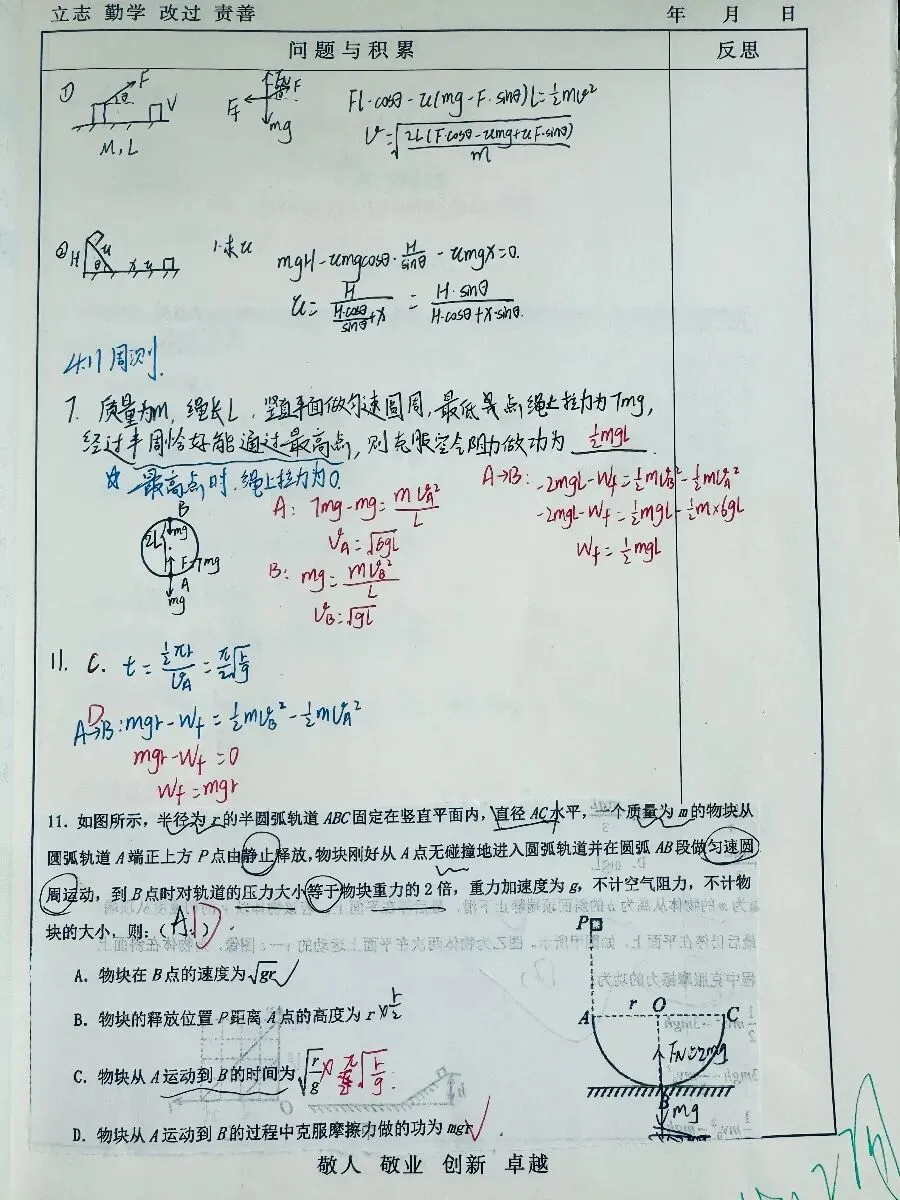 立志 勤学 改过 责善
年 月 日
问题与积累
反思
① F θ V
M, L
FN F
Ff
mg
Fl·cosθ-u(mg-F·sinθ)l=½mv²
V=√(2L(F·cosθ-umg+uF·sinθ)/m)
② H θ u x u
1.求u
mgH-umgcosθ·H/sinθ-umgx=0.
u=H/(H·cosθ/sinθ+x)=H·sinθ/(H·cosθ+x·sinθ).
4.17周测.
7. 质量为m, 绳长L, 竖直平面做匀速圆周, 最低点绳上拉力为7mg,
经过半周恰好能通过最高点, 则克服空气阻力做功为 ½mgL
☆ 最高点时.绳上拉力为0.
B
2L mg
F=7mg
A
mg
A: 7mg-mg=mVA²/L
VA=√6gL
B: mg=mVB²/L
VB=√gL
A→B: -2mgL-Wf=½mVB²-½mVA²
-2mgL-Wf=½mgL-½m×6gL
Wf=½mgL
11. C. t=½πr/VA=π/2√r/g
D
A→B:mgr-Wf=½mVB²-½mVA²
mgr-Wf=0
Wf=mgr
11. 如图所示，半径为 r 的半圆弧轨道 ABC 固定在竖直平面内，直径 AC 水平，一个质量为 m 的物块从
圆弧轨道 A 端正上方 P 点由静止释放，物块刚好从 A 点无碰撞地进入圆弧轨道并在圆弧 AB 段做匀速圆
周运动，到 B 点时对轨道的压力大小等于物块重力的 2 倍，重力加速度为 g，不计空气阻力，不计物
块的大小，则：（ A D ）
A. 物块在 B 点的速度为√gr ✓
B. 物块的释放位置 P 距离 A 点的高度为 r × r/2
C. 物块从 A 运动到 B 的时间为√r/g × π/2√r/g.
D. 物块从 A 运动到 B 的过程中克服摩擦力做的功为 mgr ✓
P
A r O C
FN=2mg
B
mg
敬人 敬业 创新 卓越